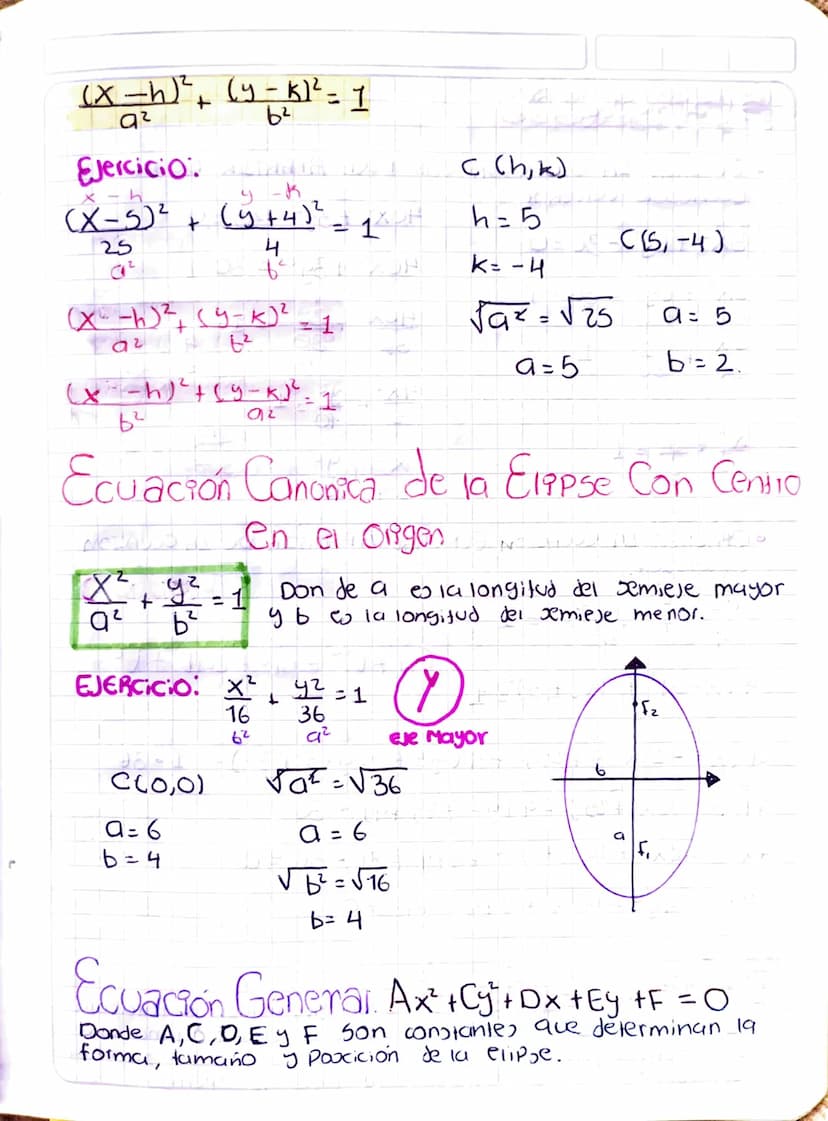 (x-h)²/a² + (y-k)²/b² = 1
Ejercicio:
x - h y - k
(x-5)²/25 + (y+4)²/4 = 1
a² b²
(x-h)²/a² + (y-k)²/b² = 1
(x-h)²/b² + (y-k)²/a² = 1
C (h,k)
h = 5
k = -4
C(5, -4)
√a² = √25 a = 5
a = 5 b = 2.
Ecuación Canonica de la Elipse Con Centro
en el Origen
x²/a² + y²/b² = 1
Don de a es la longitud del semieje mayor
y b es la longitud del semieje menor.
EJERCiCiO: x²/16 + y²/36 = 1
b² a²
y
Eje Mayor
C(0,0) √a² = √36
a = 6 a = 6
b = 4 √b² = √16
b = 4
F₂
b
a
F₁
Ecuación General. Ax² + Cy² + Dx + Ey + F = 0
Donde A, C, D, E y F son constantes que determinan la
forma, tamaño y posicición de la elipse.